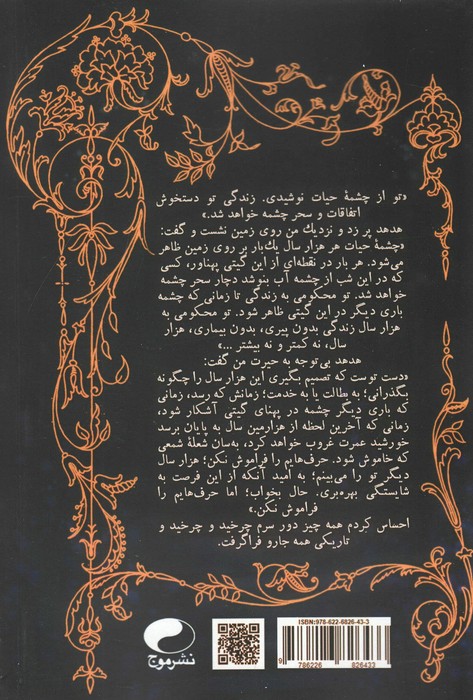 «تو از چشمهٔ حیات نوشیدی. زندگی تو دستخوش
اتفاقات و سحر چشمه خواهد شد.»
هدهد پر زد و نزدیک من روی زمین نشست و گفت:
«چشمهٔ حیات هر هزار سال یک‌بار بر روی زمین ظاهر
می‌شود. هر بار در نقطه‌ای از این گیتی پهناور، کسی
که در این شب از چشمه آب بنوشد دچار سحر چشمه
خواهد شد. تو محکومی به زندگی تا زمانی که چشمه
باری دیگر در این گیتی ظاهر شود. تو محکومی به
هزار سال زندگی بدون پیری، بدون بیماری، هزار
سال، نه کمتر و نه بیشتر ...»
هدهد بی‌توجه به حیرت من گفت:
«دست توست که تصمیم بگیری این هزار سال را چگونه
بگذرانی؛ به بطالت یا به خدمت؛ زمانش که رسد، زمانی
که باری دیگر چشمه در پهنای گیتی آشکار شود،
زمانی که آخرین لحظه از هزارمین سال به پایان برسد
خورشید عمرت غروب خواهد کرد، به‌سان شعلهٔ شمعی
که خاموش شود. حرف‌هایم را فراموش نکن؛ هزار سال
دیگر تو را می‌بینم؛ به امید آنکه از این فرصت به
شایستگی بهره‌بری. حال بخواب؛ اما حرف‌هایم را
فراموش نکن.»
احساس کردم همه چیز دور سرم چرخید و چرخید و
تاریکی همه جارو فراگرفت.
نشر موج
ISBN:978-622-6826-43-3
9 786226 826433